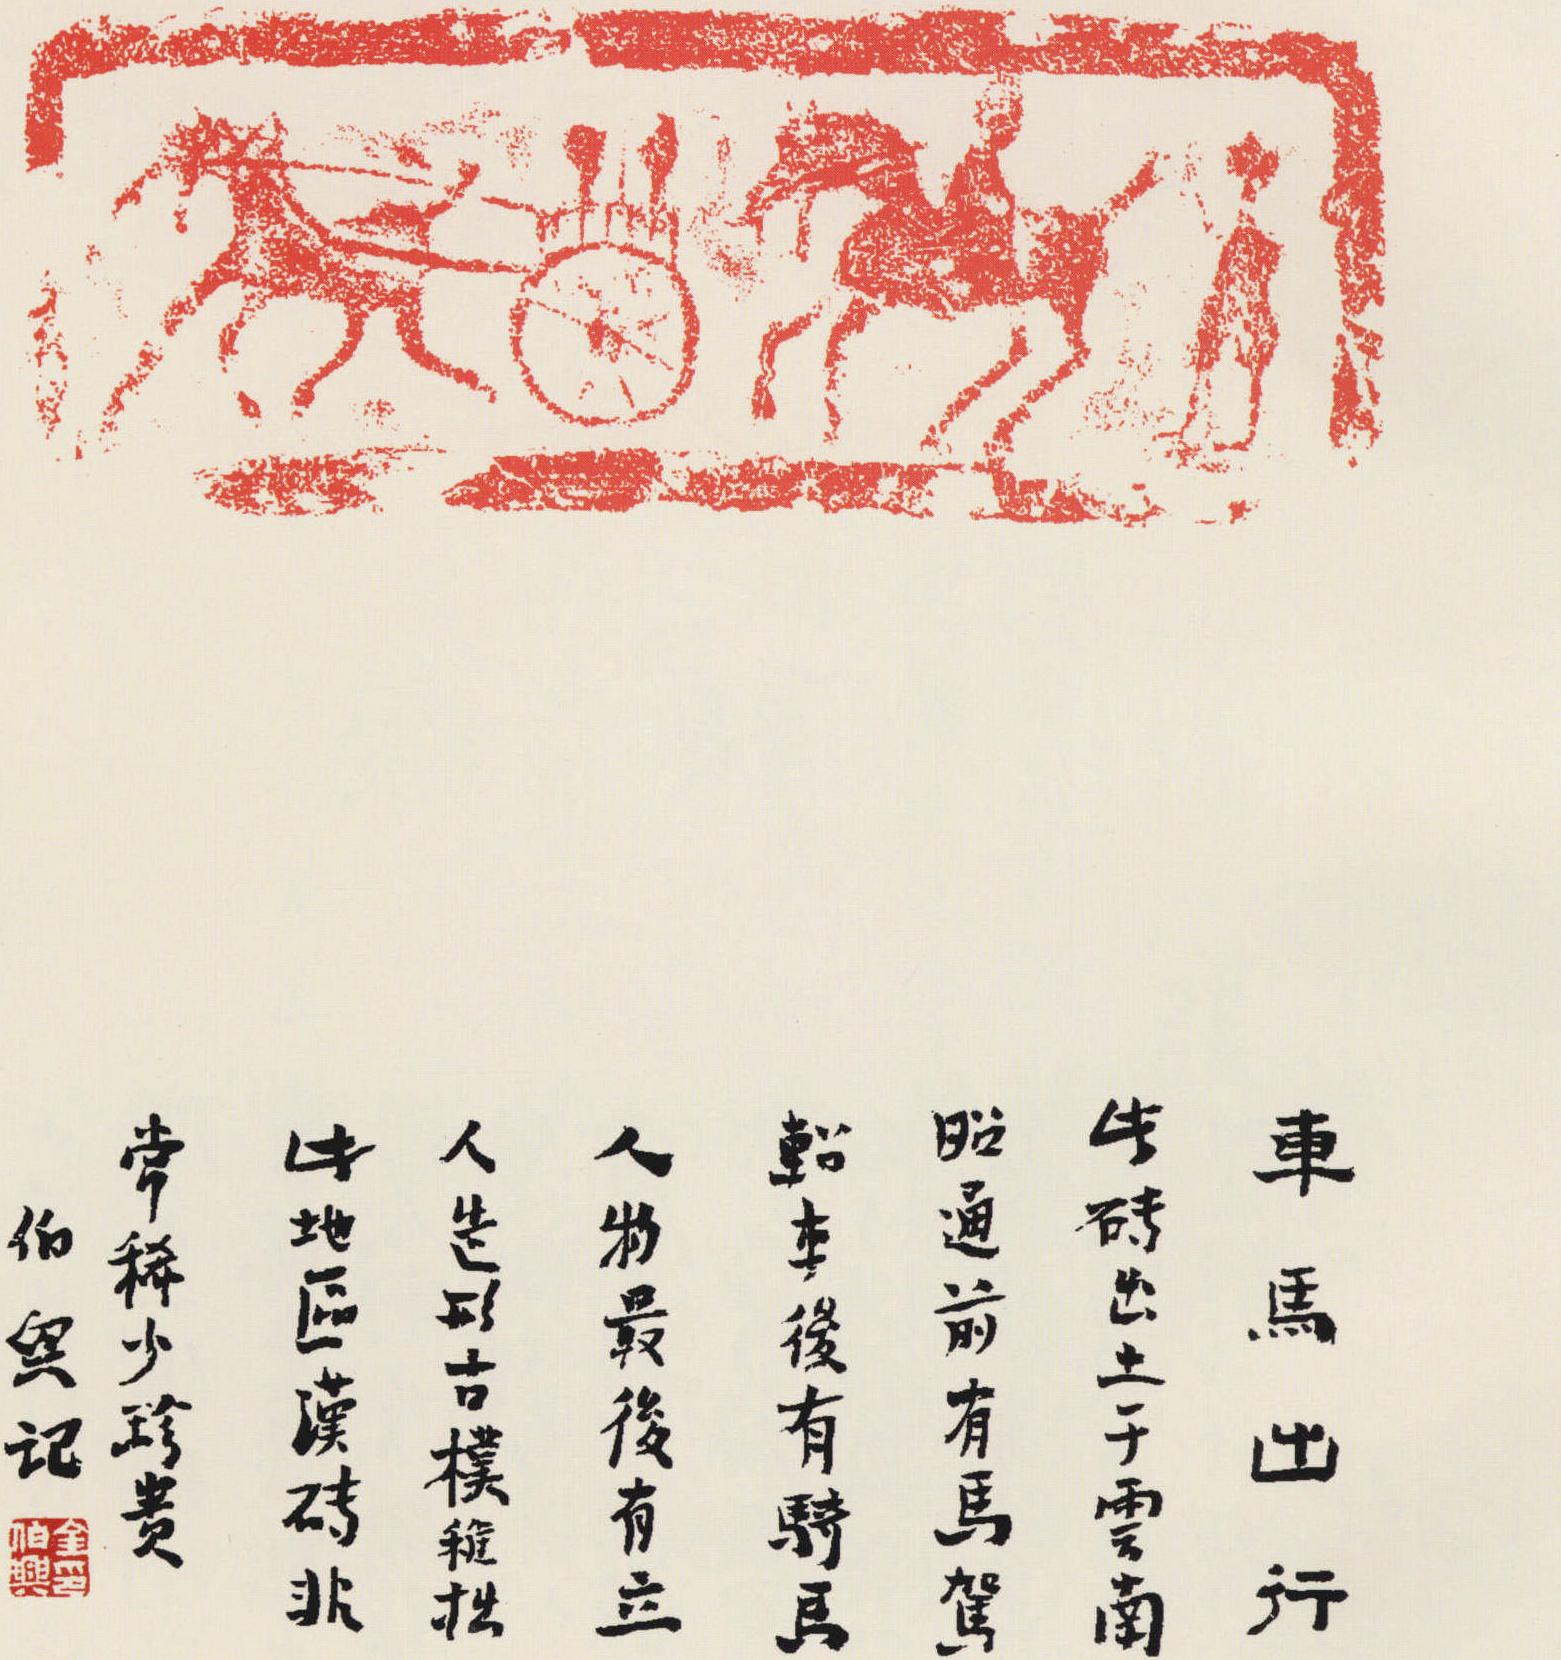 車馬出行
此砖出土于雲南
昭通前有馬駕
軺車後有騎馬
人物最後有立
人造形古樸稚拙
此地區漢砖非
常稀少珍贵
伯興记
金印
伯興